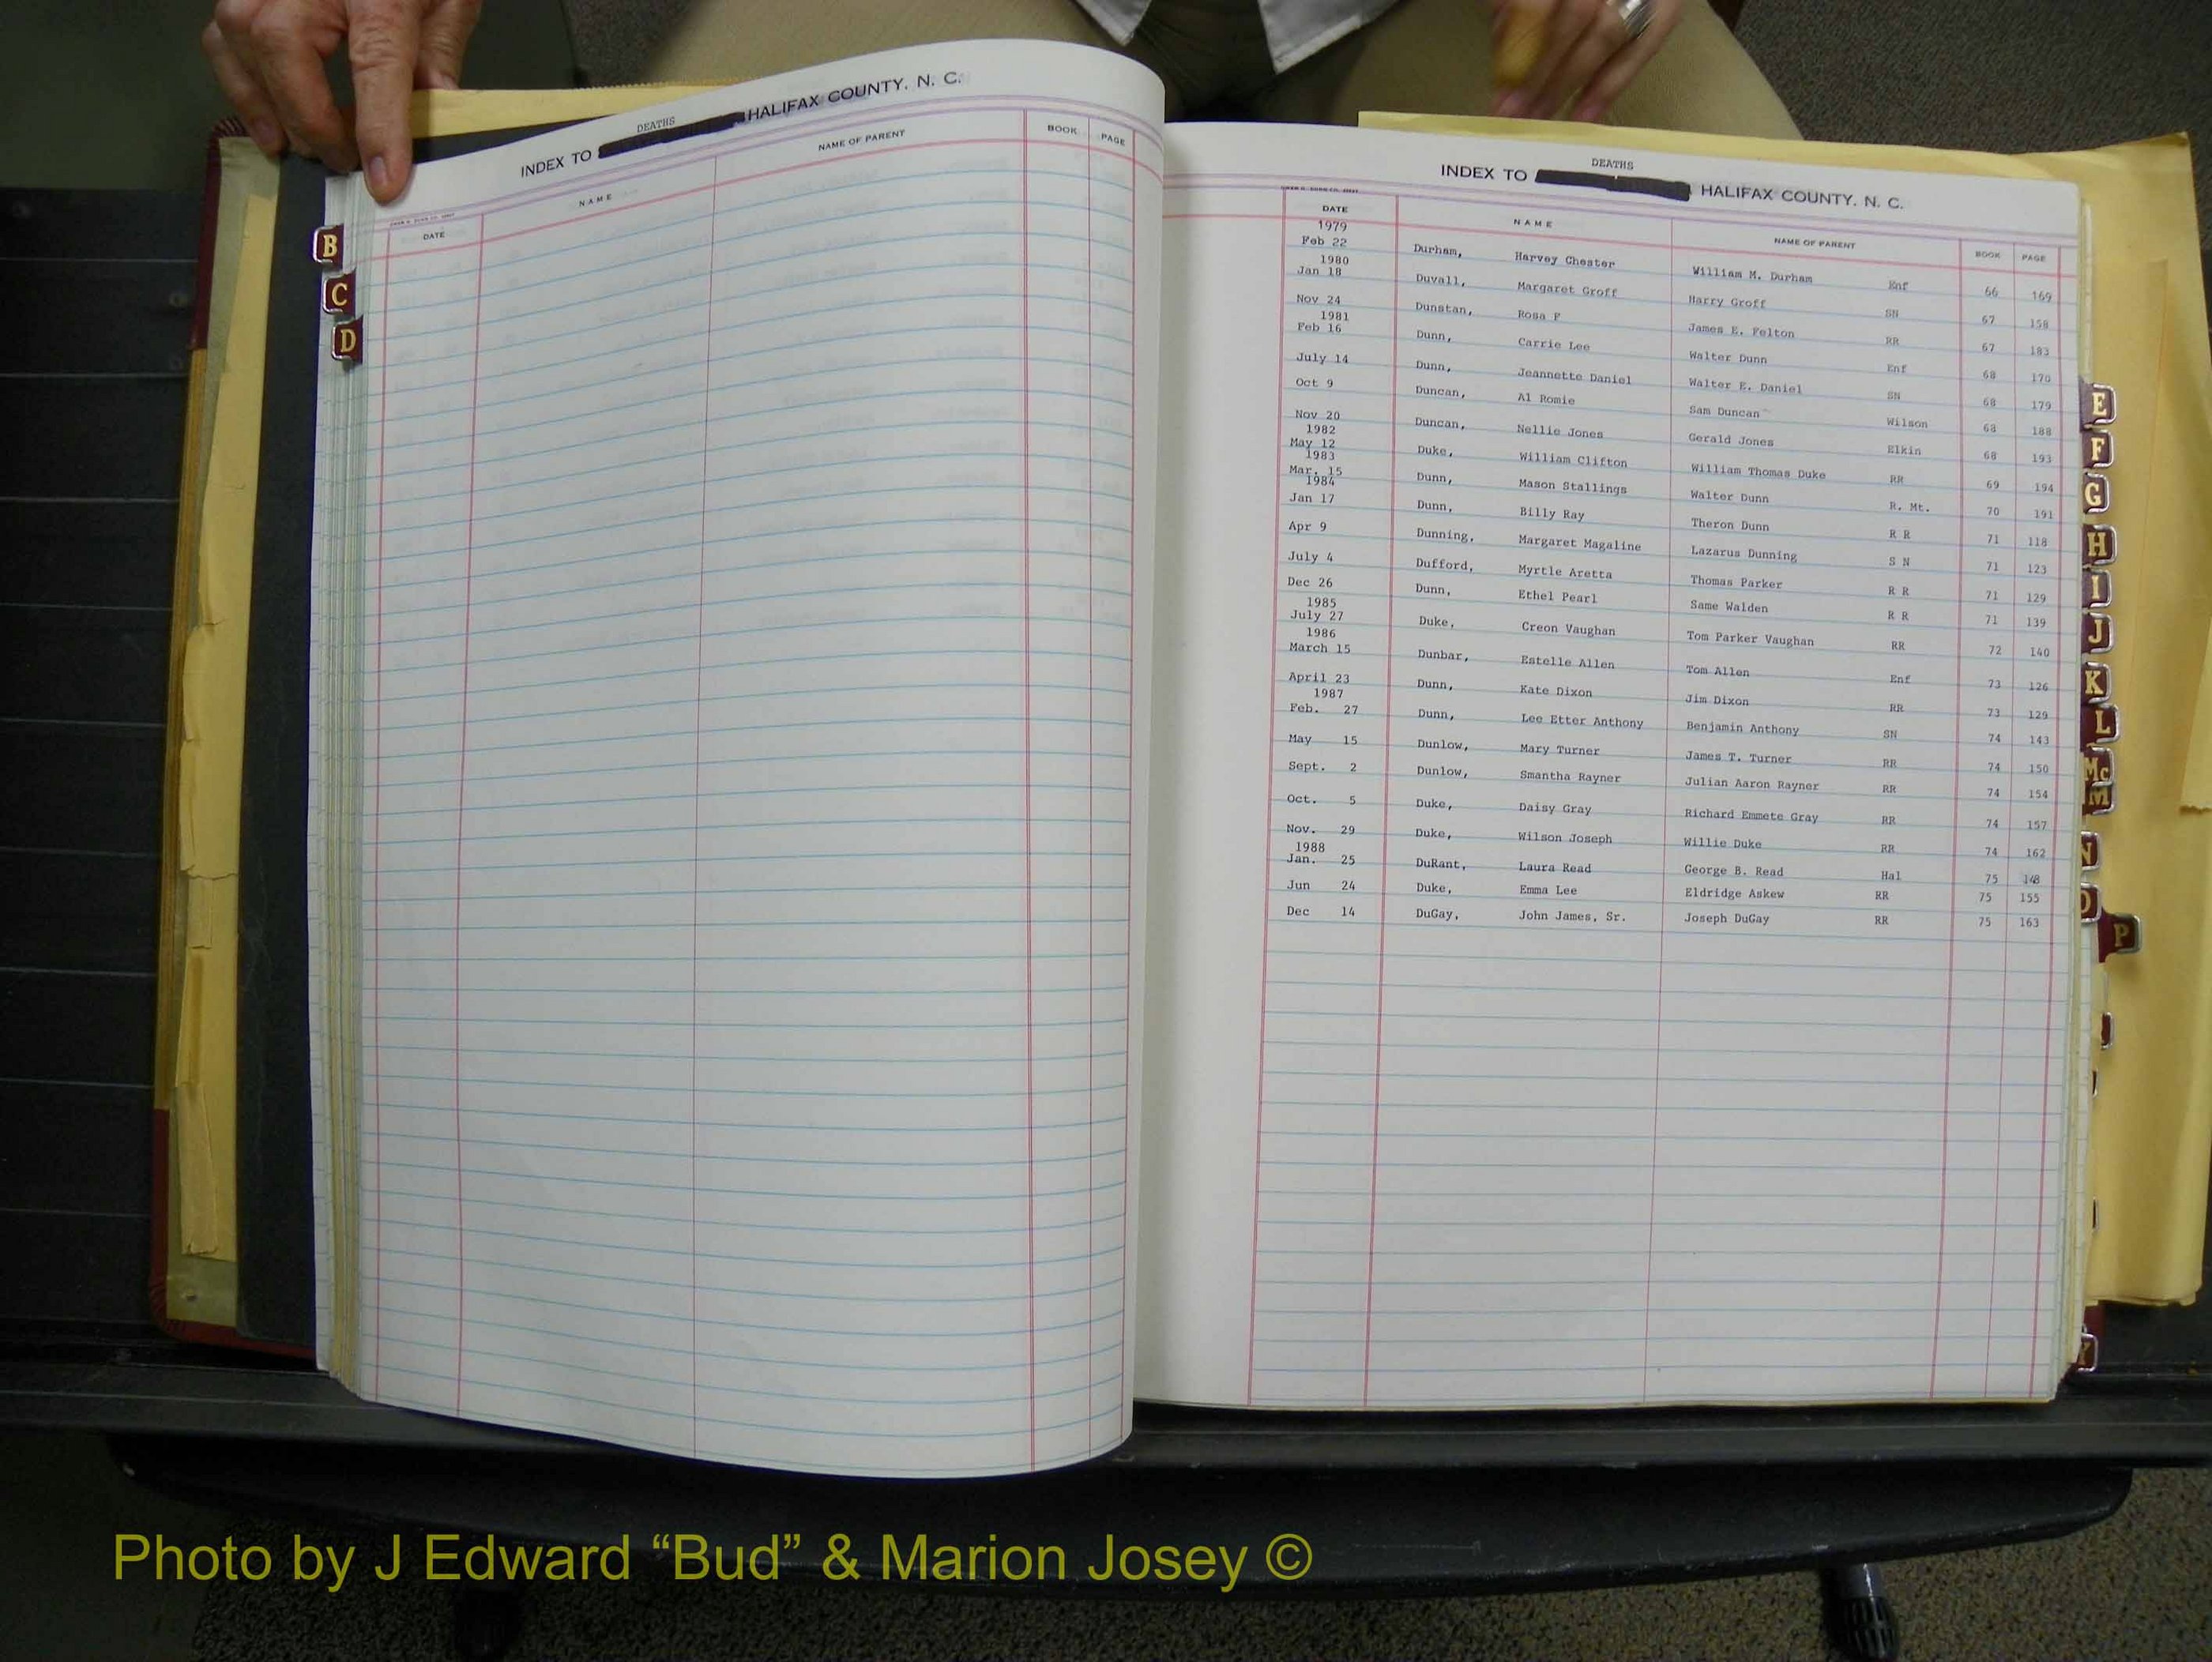 DEATHS
INDEX TO HALIFAX COUNTY, N. C.
DATE NAME NAME OF PARENT BOOK PAGE
B
C
D
DEATHS
INDEX TO HALIFAX COUNTY, N. C.
DATE NAME NAME OF PARENT BOOK PAGE
1979
Feb 22 Durham, Harvey Chester William M. Durham Enf 66 169
1980
Jan 18 Duvall, Margaret Groff Harry Groff SN 67 158
Nov 24 Dunstan, Rosa F James E. Felton RR 67 183
1981
Feb 16 Dunn, Carrie Lee Walter Dunn Enf 68 170
July 14 Dunn, Jeannette Daniel Walter E. Daniel SN 68 179
Oct 9 Duncan, Al Romie Sam Duncan Wilson 68 188
Nov 20 Duncan, Nellie Jones Gerald Jones Elkin 68 193
1982
May 12 Duke, William Clifton William Thomas Duke RR 69 194
1983
Mar. 15 Dunn, Mason Stallings Walter Dunn R. Mt. 70 191
1984
Jan 17 Dunn, Billy Ray Theron Dunn R R 71 118
Apr 9 Dunning, Margaret Magaline Lazarus Dunning S N 71 123
July 4 Dufford, Myrtle Aretta Thomas Parker R R 71 129
Dec 26 Dunn, Ethel Pearl Same Walden R R 71 139
1985
July 27 Duke, Creon Vaughan Tom Parker Vaughan RR 72 140
1986
March 15 Dunbar, Estelle Allen Tom Allen Enf 73 126
April 23 Dunn, Kate Dixon Jim Dixon RR 73 129
1987
Feb. 27 Dunn, Lee Etter Anthony Benjamin Anthony SN 74 143
May 15 Dunlow, Mary Turner James T. Turner RR 74 150
Sept. 2 Dunlow, Smantha Rayner Julian Aaron Rayner RR 74 154
Oct. 5 Duke, Daisy Gray Richard Emmete Gray RR 74 157
Nov. 29 Duke, Wilson Joseph Willie Duke RR 74 162
1988
Jan. 25 DuRant, Laura Read George B. Read Hal 75 148
Jun 24 Duke, Emma Lee Eldridge Askew RR 75 155
Dec 14 DuGay, John James, Sr. Joseph DuGay RR 75 163
E
F
G
H
I
J
K
L
Mc
M
N
O
P
Y
Photo by J Edward “Bud” & Marion Josey ©